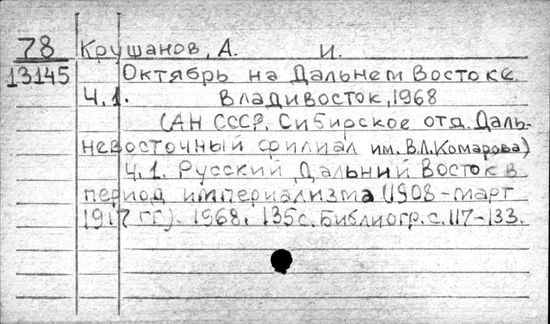 78 Крушанов, А. И.
13145 Октябрь на Дальнем Востоке.
Ч.1. Владивосток, 1968
(АН СССР. Сибирское отд. Даль-
невосточный филиал им. В.Л. Комарова)
Ч.1. Русский Дальний Восток в
период империализма (1908-март
1917 гг). 1968. 135с. Библиогр. с. 117-133.